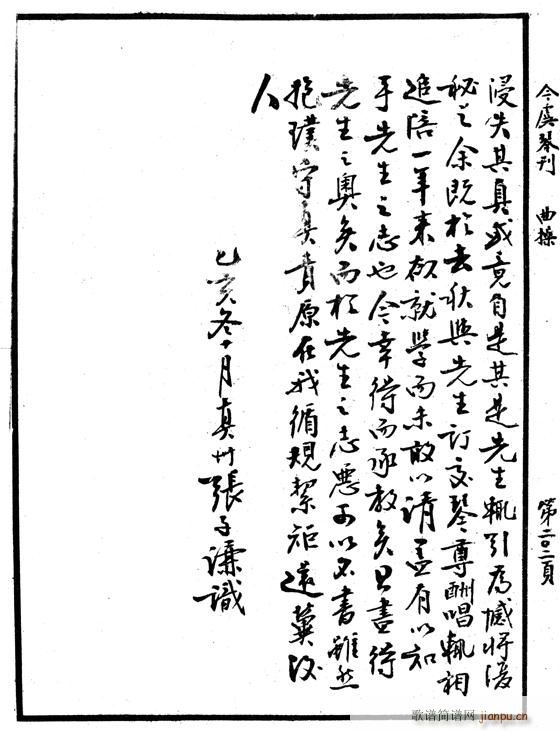 今虞琴刊　曲操　第二〇二頁
浸失其真或竟自是其是先生輒引為憾將復
秘之余既於去秋與先生訂交琴尊酬唱輒相
追陪一年來欲就學而未敢以請蓋有以知
乎先生之志也今幸得而承教矣且盡得
先生之奧矣而於先生之志惡可以不書雖然
抱璞守真責原在我循規絜矩還冀後
人
乙亥冬十月真州張子謙識
歌谱简谱网 jianpu.cn